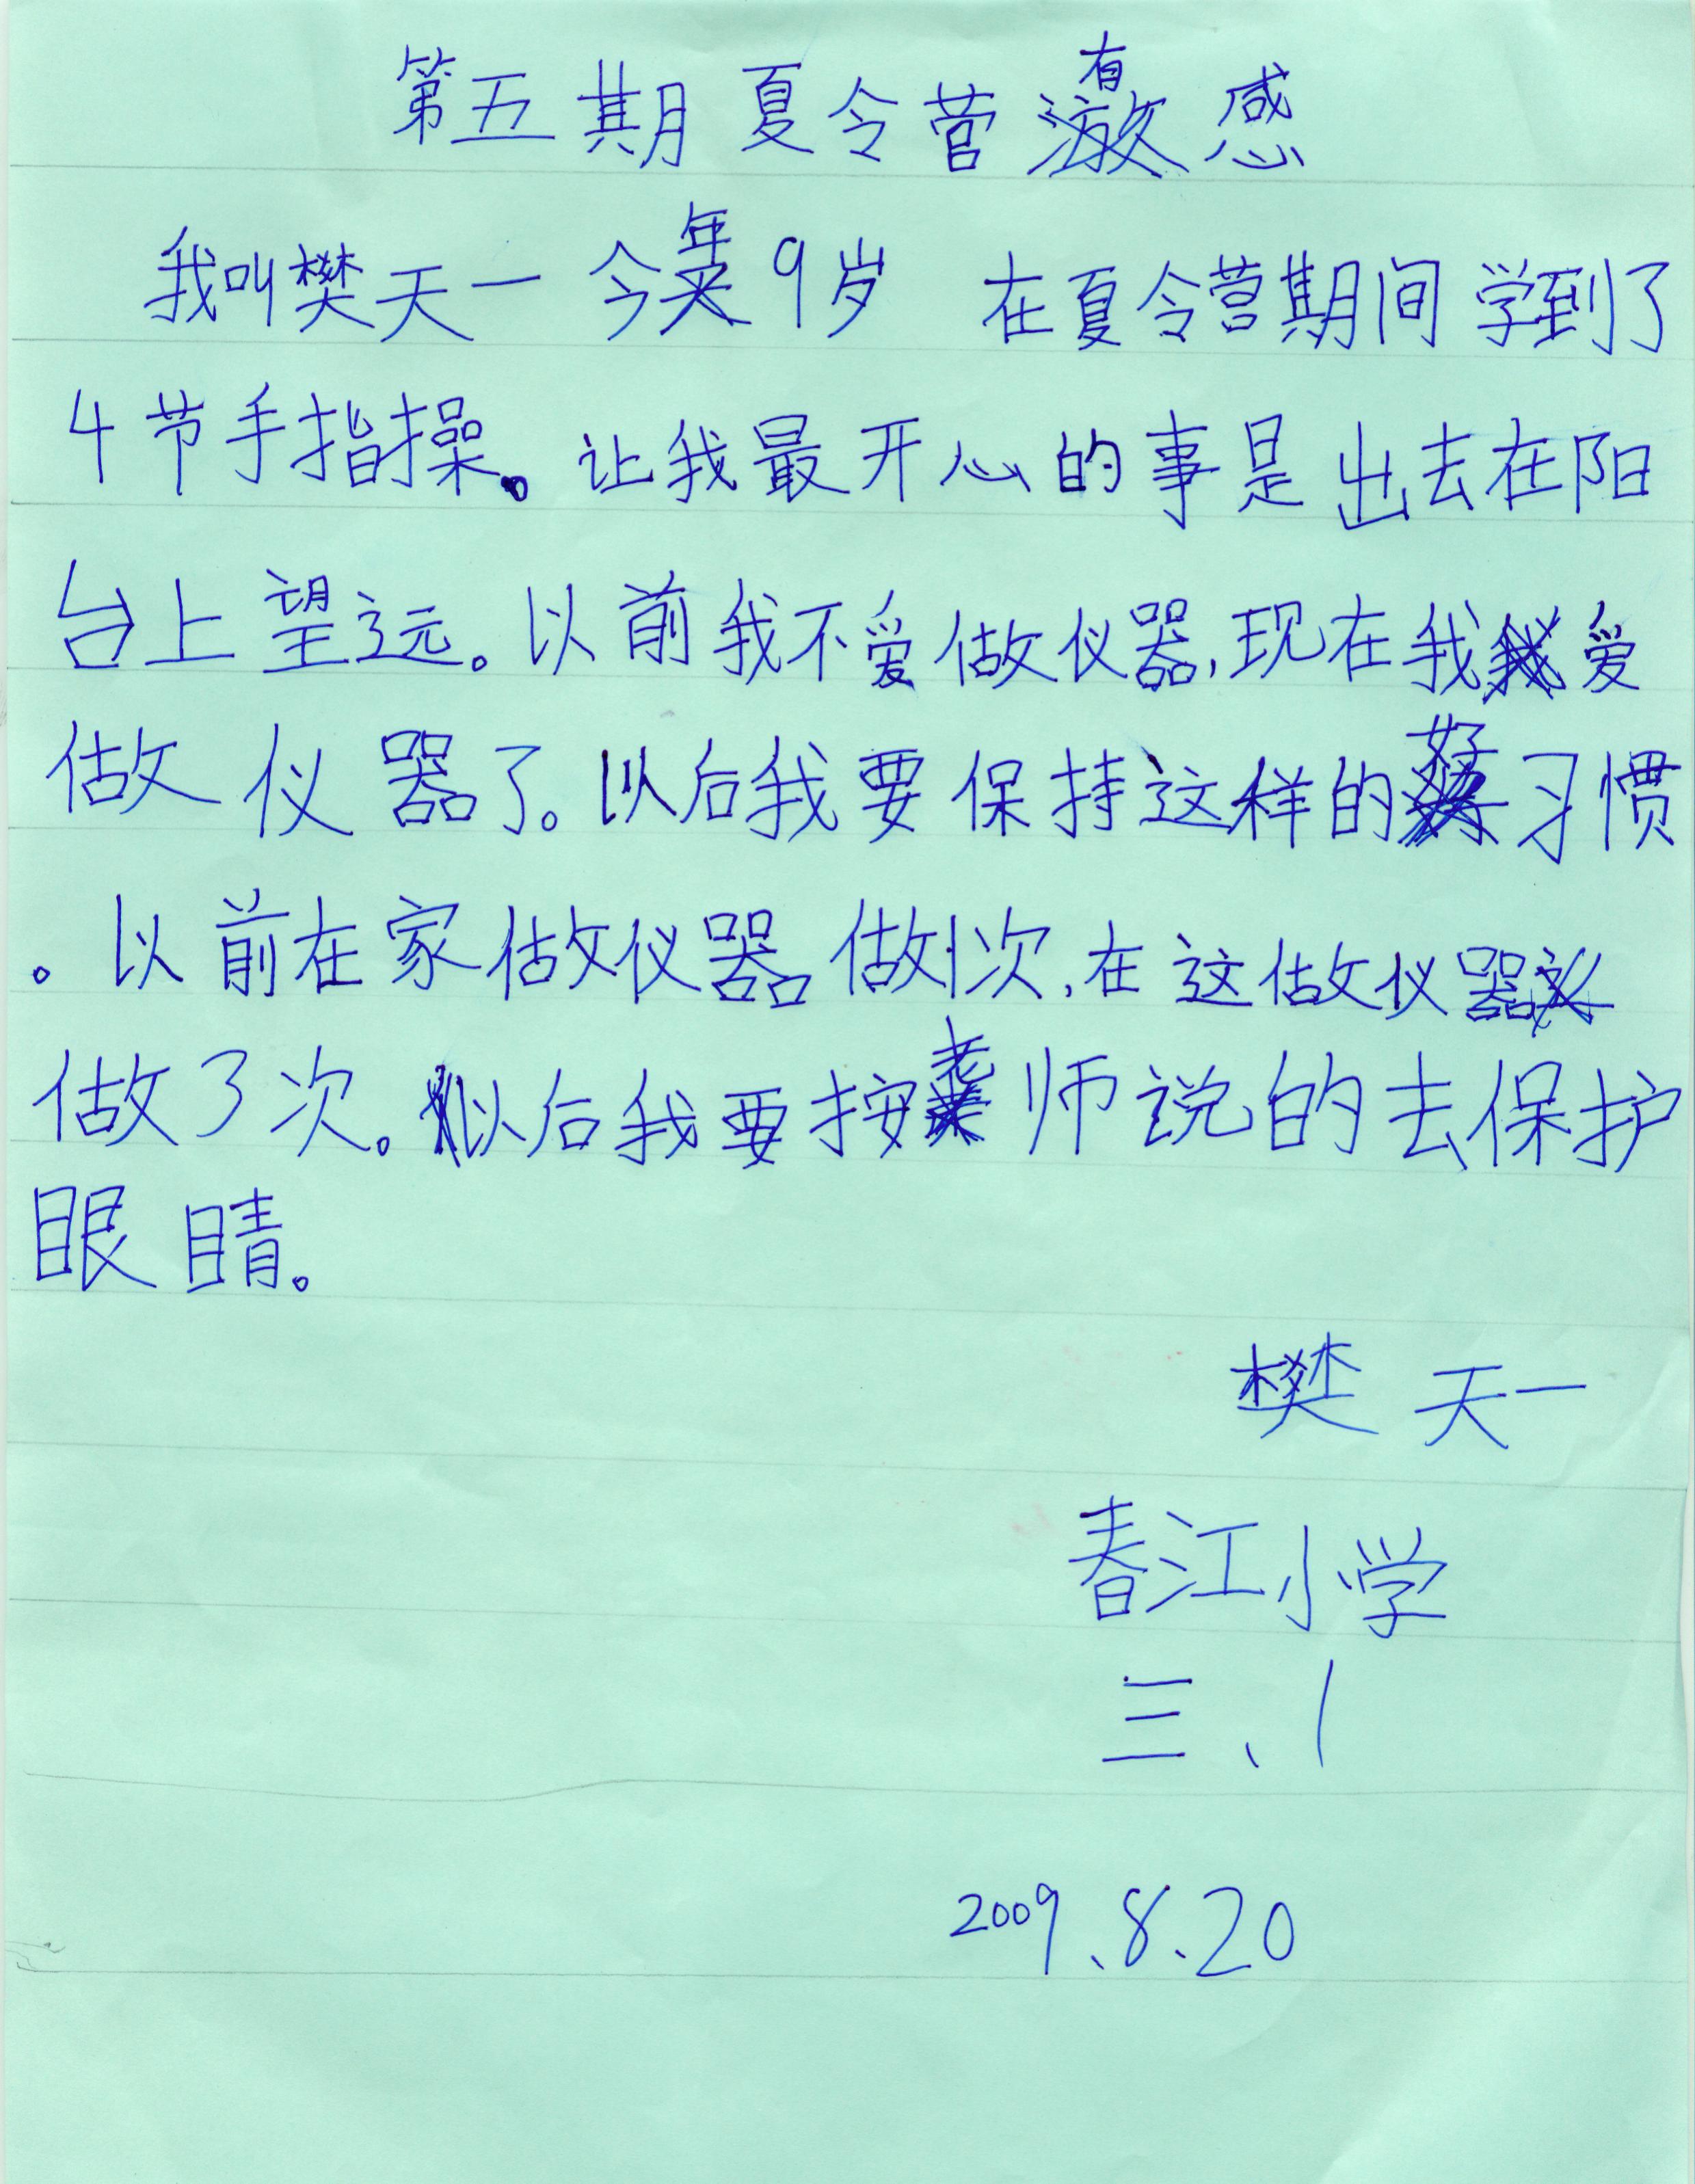 第五期夏令营有感
我叫樊天一 今年9岁 在夏令营期间学到了
4节手指操。让我最开心的事是出去在阳
台上望远。以前我不爱做仪器,现在我爱
做仪器了。以后我要保持这样的好习惯
。以前在家做仪器做1次,在这做仪器
做3次。以后我要按老师说的去保护
眼睛。
樊天一
春江小学
三、1
2009、8、20